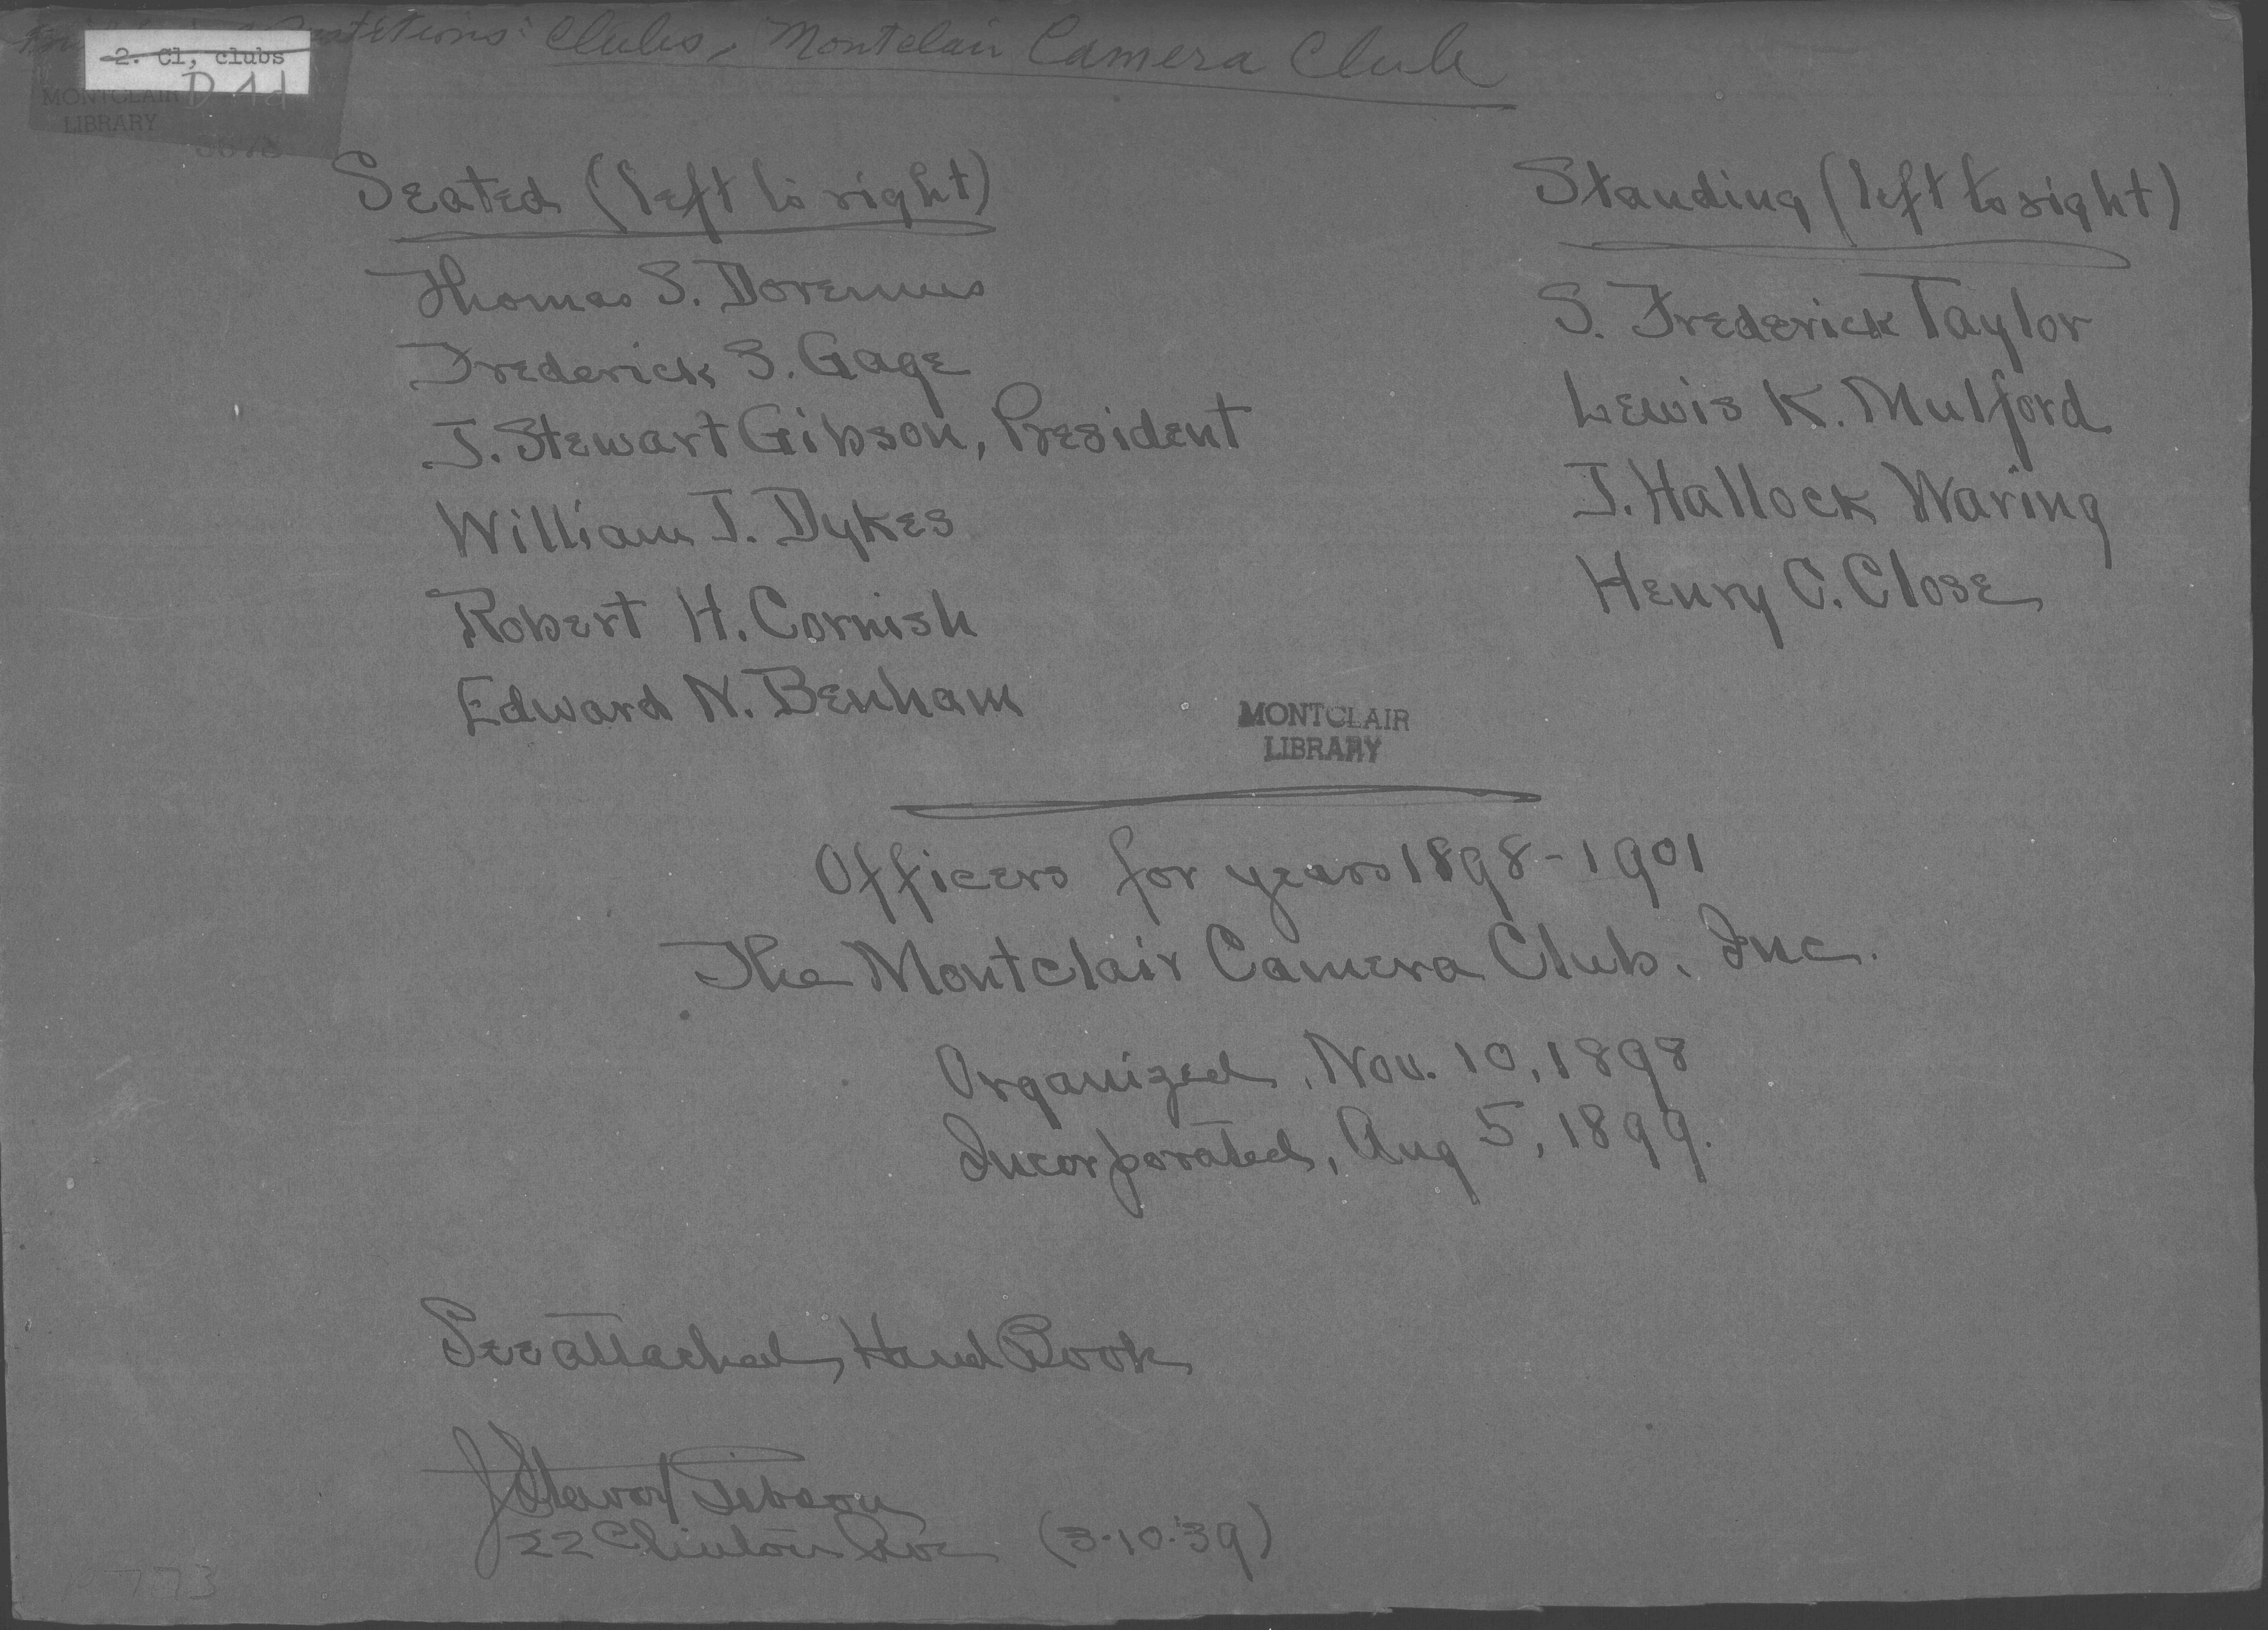 Clubs, Montclair Camera Club
2. Cl, clubs
D 4d
MONTCLAIR
LIBRARY
Seated (left to right)
Thomas S. Doremus
Frederick S. Gage
J. Stewart Gibson, President
William J. Dykes
Robert H. Cornish
Edward N. Benham
Standing (left to right)
S. Frederick Taylor
Lewis K. Mulford
J. Hallock Waring
Henry C. Close
MONTCLAIR
LIBRARY
Officers for years 1898-1901
The Montclair Camera Club. Inc.
Organized, Nov. 10, 1898
Incorporated, Aug 5, 1899.
See attached Hand Book
J Stewart Gibson
22 Clinton Ave (3-10-39)
773